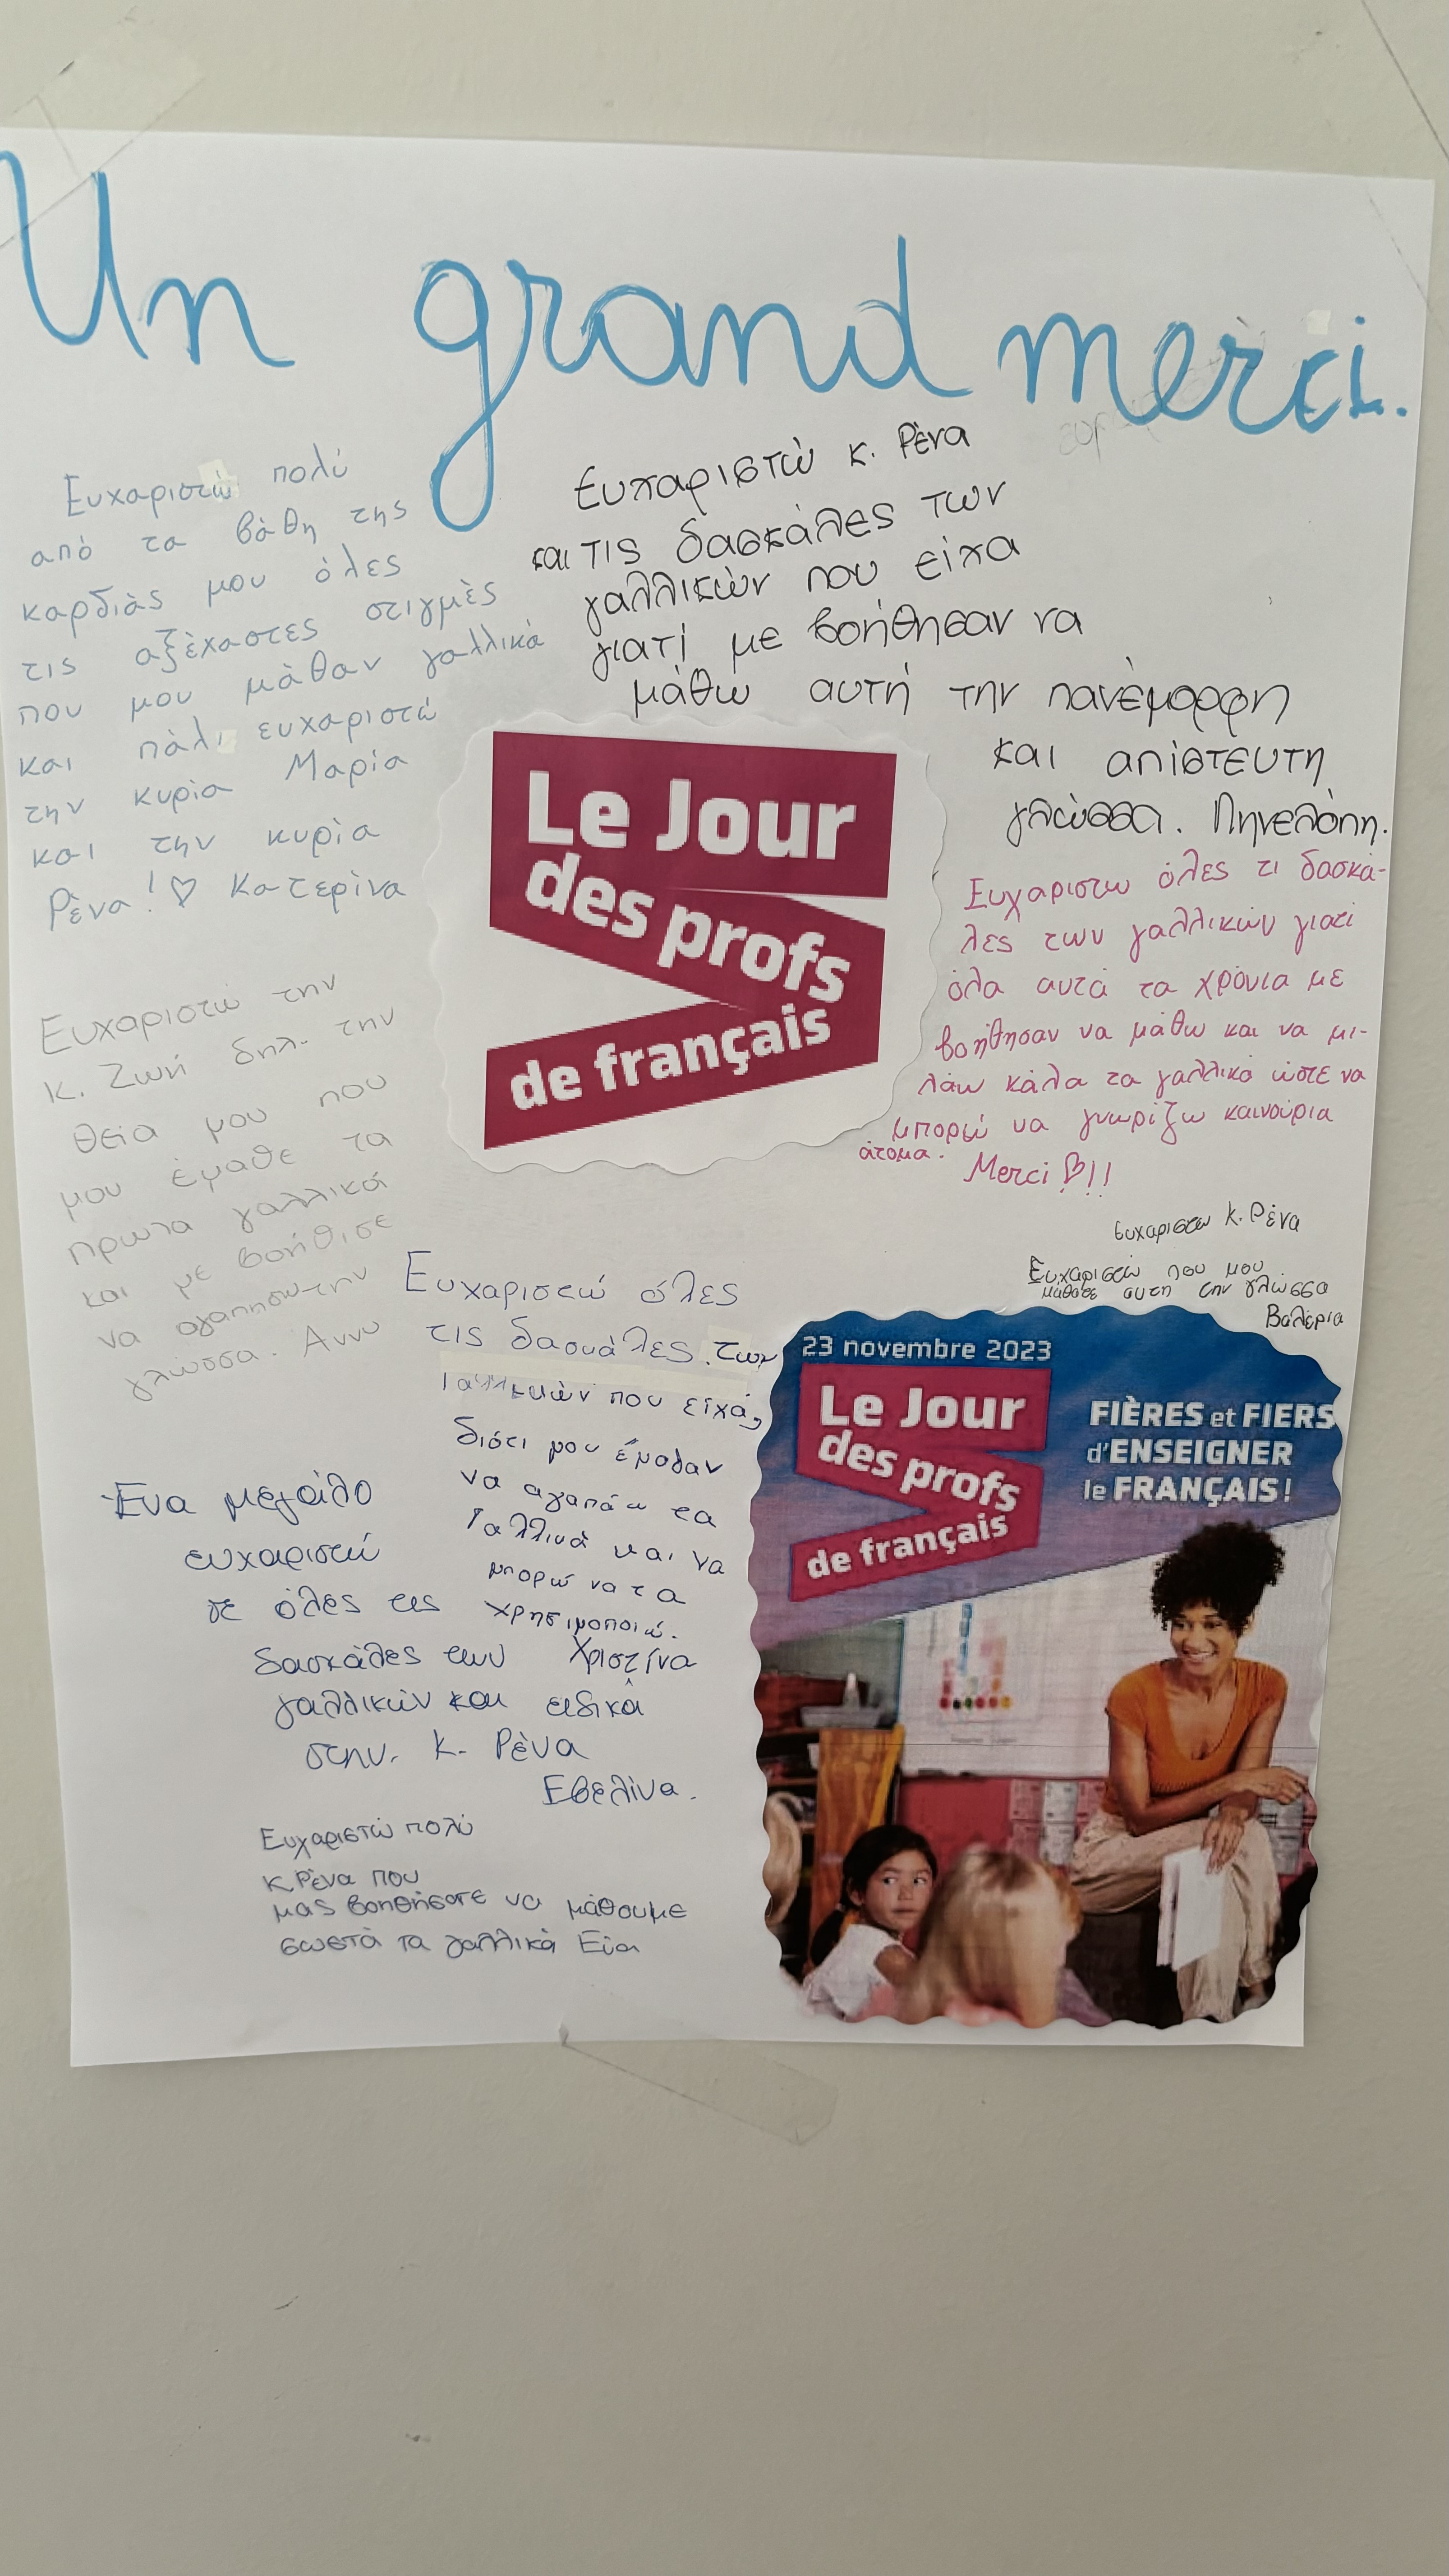 Un grand merci.
Ευχαριστώ πολύ
από τα βάθη της
καρδιάς μου όλες
τις αξέχαστες στιγμές
που μου μάθαν γαλλικά
και πάλι ευχαριστώ
την κυρία Μαρία
και την κυρία
Ρένα! ♡ Κατερίνα
Ευχαριστώ κ. Ρένα
και τις δασκάλες των
γαλλικών που είχα
γιατί με βοήθησαν να
μάθω αυτή την πανέμορφη
και απίστευτη
γλώσσα. Πηνελόπη.
Le Jour
des profs
de français
Ευχαριστω όλες τι δασκά-
λες των γαλλικών γιατί
όλα αυτά τα χρόνια με
βοήθησαν να μάθω και να μι-
λάω κάλα τα γαλλικά ώστε να
μπορώ να γνωρίζω καινούρια
άτομα.
Merci ♡!!
Ευχαριστώ την
κ. Ζωή δηλ. την
θεία μου που
μου έμαθε τα
πρώτα γαλλικά
και με βοήθισε
να αγαπησω την
γλώσσα. Αννα
ευχαριστω κ. Ρένα
Ευχαριστώ που μου
μάθατε αυτη την γλώσσα
Βαλέρια
Ευχαριστώ όλες
τις δασκάλες των
Γαλλικών που είχα,
διότι μου έμαθαν
να αγαπάω τα
Γαλλικά και να
μπορώ να τα
χρησιμοποιώ.
Χριστίνα
Ένα μεγάλο
ευχαριστώ
σε όλες τις
δασκάλες των
γαλλικών και ειδικά
στην κ. Ρένα
Εβελίνα.
Ευχαριστώ πολύ
κ Ρένα που
μας βοηθήσατε να μάθουμε
σωστά τα γαλλικά Εύα
23 novembre 2023
Le Jour
des profs
de français
FIÈRES et FIERS
d'ENSEIGNER
le FRANÇAIS!